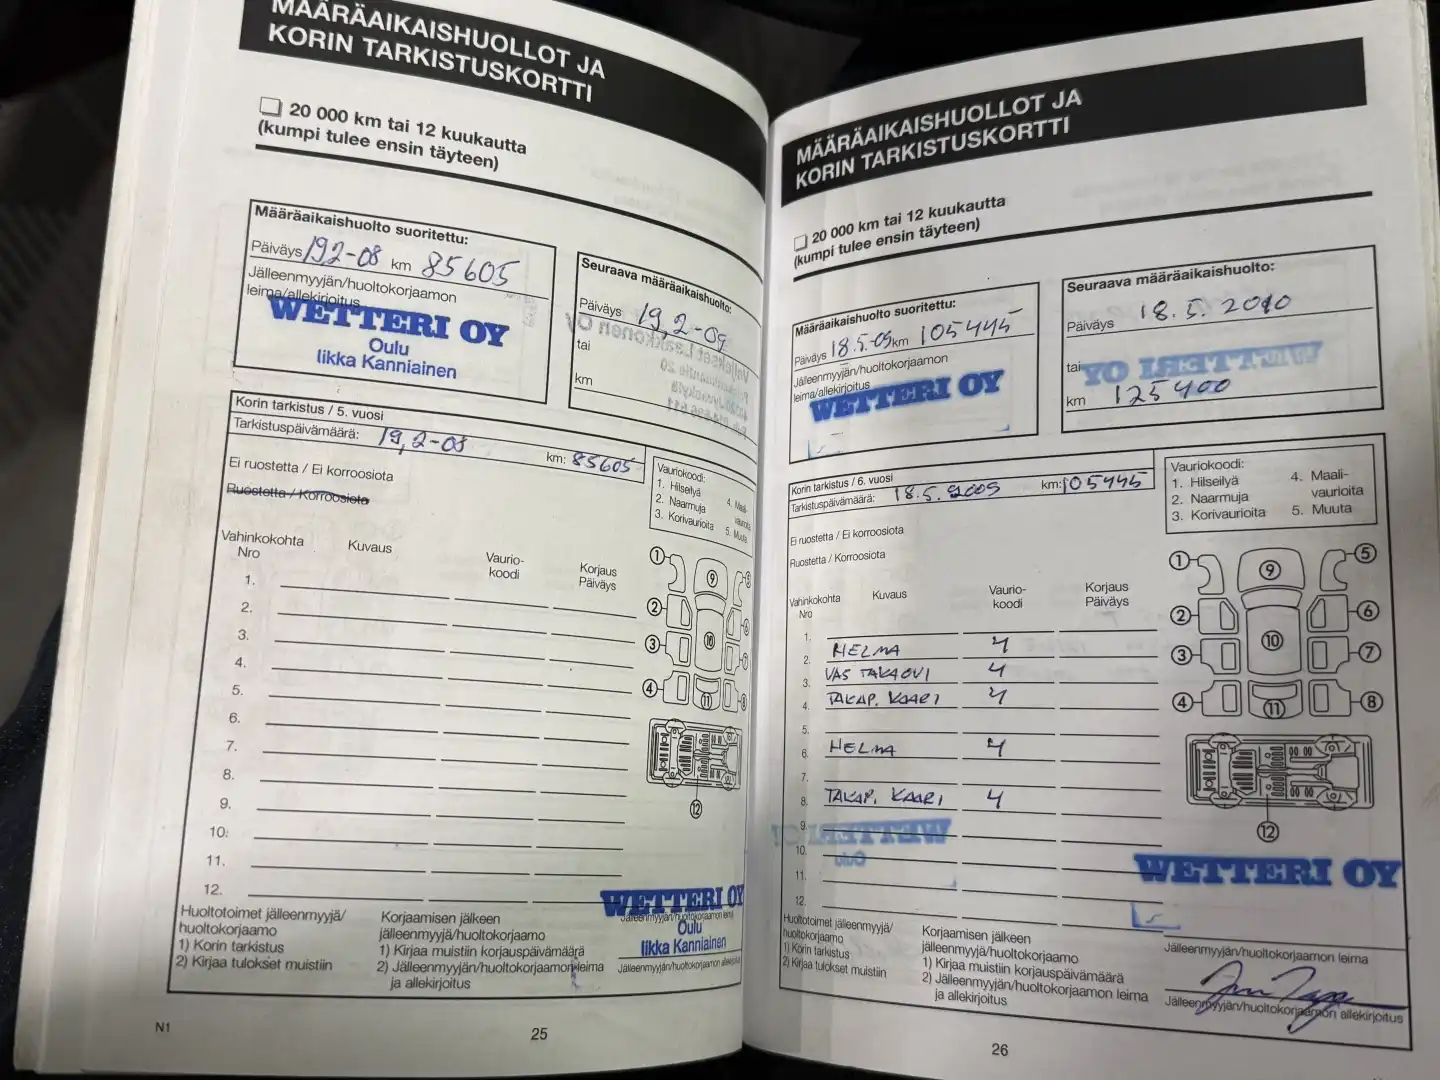 MÄÄRÄAIKAISHUOLLOT JA
KORIN TARKISTUSKORTTI
20 000 km tai 12 kuukautta
(kumpi tulee ensin täyteen)
Määräaikaishuolto suoritettu:
Päiväys 19.2-08 km 85605
Jälleenmyyjän/huoltokorjaamon
leima/allekirjoitus
WETTERI OY
Oulu
Iikka Kanniainen
Seuraava määräaikaishuolto:
Päiväys 19,2-09
tai
km
Korin tarkistus / 5. vuosi
Tarkistuspäivämäärä: 19,2-08 km: 85605
Ei ruostetta / Ei korroosiota
Ruostetta / Korroosiota
Vauriokoodi:
1. Hilseilyä
2. Naarmuja
3. Korivaurioita
4. Maali-
vaurioita
5. Muuta
Vahinkokohta
Nro
Kuvaus
Vaurio-
koodi
Korjaus
Päiväys
1.
2.
3.
4.
5.
6.
7.
8.
9.
10.
11.
12.
1
2
3
4
5
6
7
8
9
10
11
12
Huoltotoimet jälleenmyyjä/
huoltokorjaamo
1) Korin tarkistus
2) Kirjaa tulokset muistiin
Korjaamisen jälkeen
jälleenmyyjä/huoltokorjaamo
1) Kirjaa muistiin korjauspäivämäärä
2) Jälleenmyyjän/huoltokorjaamon leima
ja allekirjoitus
WETTERI OY
Jälleenmyyjän/huoltokorjaamon leima
Oulu
Iikka Kanniainen
Jälleenmyyjän/huoltokorjaamon allekirjoitus
N1
25
MÄÄRÄAIKAISHUOLLOT JA
KORIN TARKISTUSKORTTI
20 000 km tai 12 kuukautta
(kumpi tulee ensin täyteen)
Määräaikaishuolto suoritettu:
Päiväys 18.5-09 km 105445
Jälleenmyyjän/huoltokorjaamon
leima/allekirjoitus
WETTERI OY
Seuraava määräaikaishuolto:
Päiväys 18.5.2010
tai
km 125400
Korin tarkistus / 6. vuosi
Tarkistuspäivämäärä: 18.5.2009 km: 105445
Ei ruostetta / Ei korroosiota
Ruostetta / Korroosiota
Vauriokoodi:
1. Hilseilyä
2. Naarmuja
3. Korivaurioita
4. Maali-
vaurioita
5. Muuta
Vahinkokohta
Nro
Kuvaus
Vaurio-
koodi
Korjaus
Päiväys
1.
2. HELMA 4
3. VAS TAKAOVI 4
4. TAKAP. KAARI 4
5.
6. HELMA 4
7.
8. TAKAP. KAARI 4
9.
10.
11.
12.
1
2
3
4
5
6
7
8
9
10
11
12
Huoltotoimet jälleenmyyjä/
huoltokorjaamo
1) Korin tarkistus
2) Kirjaa tulokset muistiin
Korjaamisen jälkeen
jälleenmyyjä/huoltokorjaamo
1) Kirjaa muistiin korjauspäivämäärä
2) Jälleenmyyjän/huoltokorjaamon leima
ja allekirjoitus
WETTERI OY
Jälleenmyyjän/huoltokorjaamon leima
Jälleenmyyjän/huoltokorjaamon allekirjoitus
26